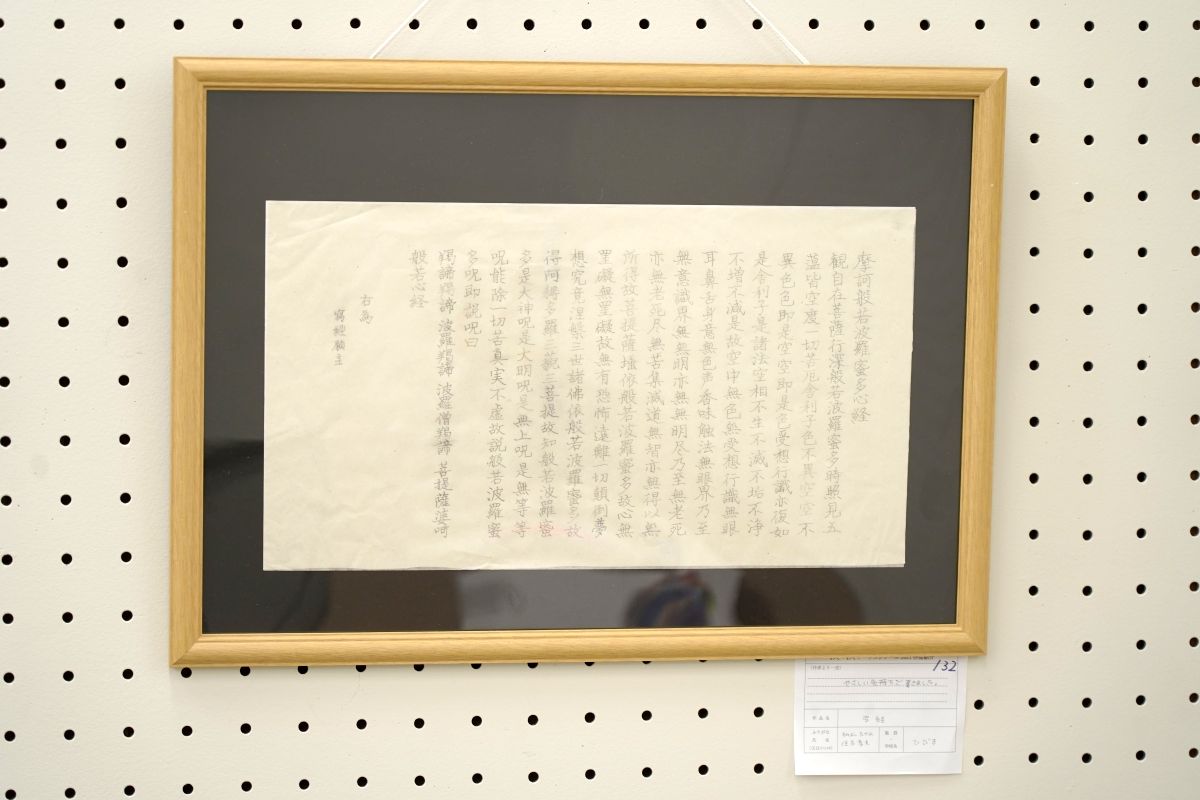 摩訶般若波羅蜜多心経
観自在菩薩行深般若波羅蜜多時照見五
蘊皆空度一切苦厄舎利子色不異空空不
異色色即是空空即是色受想行識亦復如
是舎利子是諸法空相不生不滅不垢不浄
不増不減是故空中無色無受想行識無眼
耳鼻舌身意無色声香味触法無眼界乃至
無意識界無無明亦無無明尽乃至無老死
亦無老死尽無苦集滅道無智亦無得以無
所得故菩提薩埵依般若波羅蜜多故心無
罣礙無罣礙故無有恐怖遠離一切顛倒夢
想究竟涅槃三世諸佛依般若波羅蜜多故
得阿耨多羅三藐三菩提故知般若波羅蜜
多是大神呪是大明呪是無上呪是無等等
呪能除一切苦真実不虚故説般若波羅蜜
多呪即説呪曰
羯諦羯諦 波羅羯諦 波羅僧羯諦 菩提薩婆呵
般若心経
右為
寫経願主
132
やさしい気持ちで書きました。
作品名 写経
ふりがな
氏名